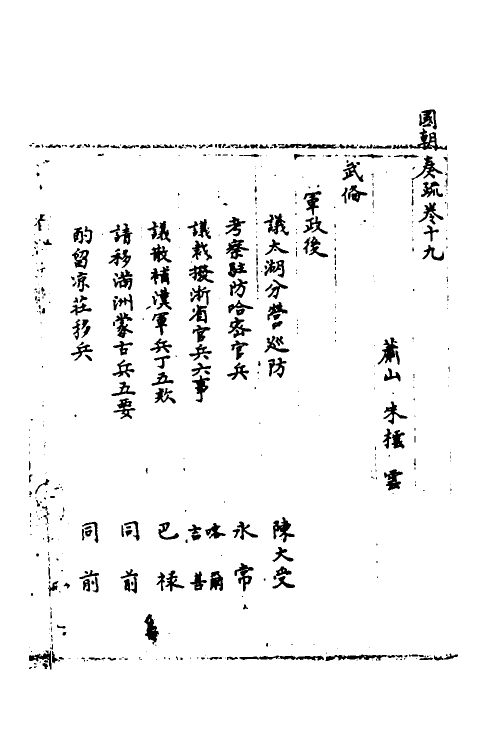 國朝奏疏卷十九
蕭山 朱橒 雲
武備
軍政後
議太湖分營巡防 陳大受
考察駐防哈密官兵 永常
議裁撥浙省官兵六事 喀爾吉善
議散補漢軍兵丁五欵 巴祿
請移滿洲蒙古兵五要 同前
酌留凉莊移兵 同前